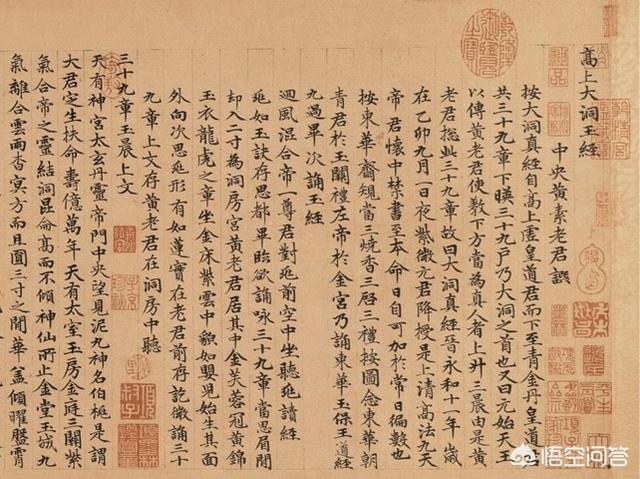 高上大洞玉經
中央黄素老君譔
按大洞真經自高上虚皇道君而下至青金丹皇道君
共三十九章下暎三十九户乃大洞之首也又曰元始天王
以傳黄老君使教下方當為真人者上升三晨由是黄
老君総此三十九章故曰大洞真經晉永和十一年歳
在乙卯九月一日夜紫微元君降授是上清髙法九天
帝君懷中禁書至本命日自可加於常日徧數也
按東華齋規當三燒香三啓三禮按圖念東華朝
青君於玉闕禮左帝於金宮乃誦東華玉保王道經
九過畢次誦玉經
迴風混合帝一尊君對
前空中坐聽
讀經
如玉訣存思都畢臨欲誦咏三十九章當思眉間
却入二寸為洞房宮黄老君居其中金芙蓉冠黄錦
玉衣龍虎之章坐金床紫雲中貌如嬰兒始生其面
外向次思
形有如蓮實在老君前存訖微誦三十
九章上文存黄老君在洞房中聽
三十九章玉晨上文
天有神宮太玄丹靈帝門中央望見泥九神名伯極是謂
大君定生扶命壽億萬年天有太室玉房金庭三關紫
氣合帝之靈結洞昆命髙而不傾神仙所止金堂玉城九
氣離合雲雨杳冥方而且圓三寸之間華盖傾曜
霄
悟空问答